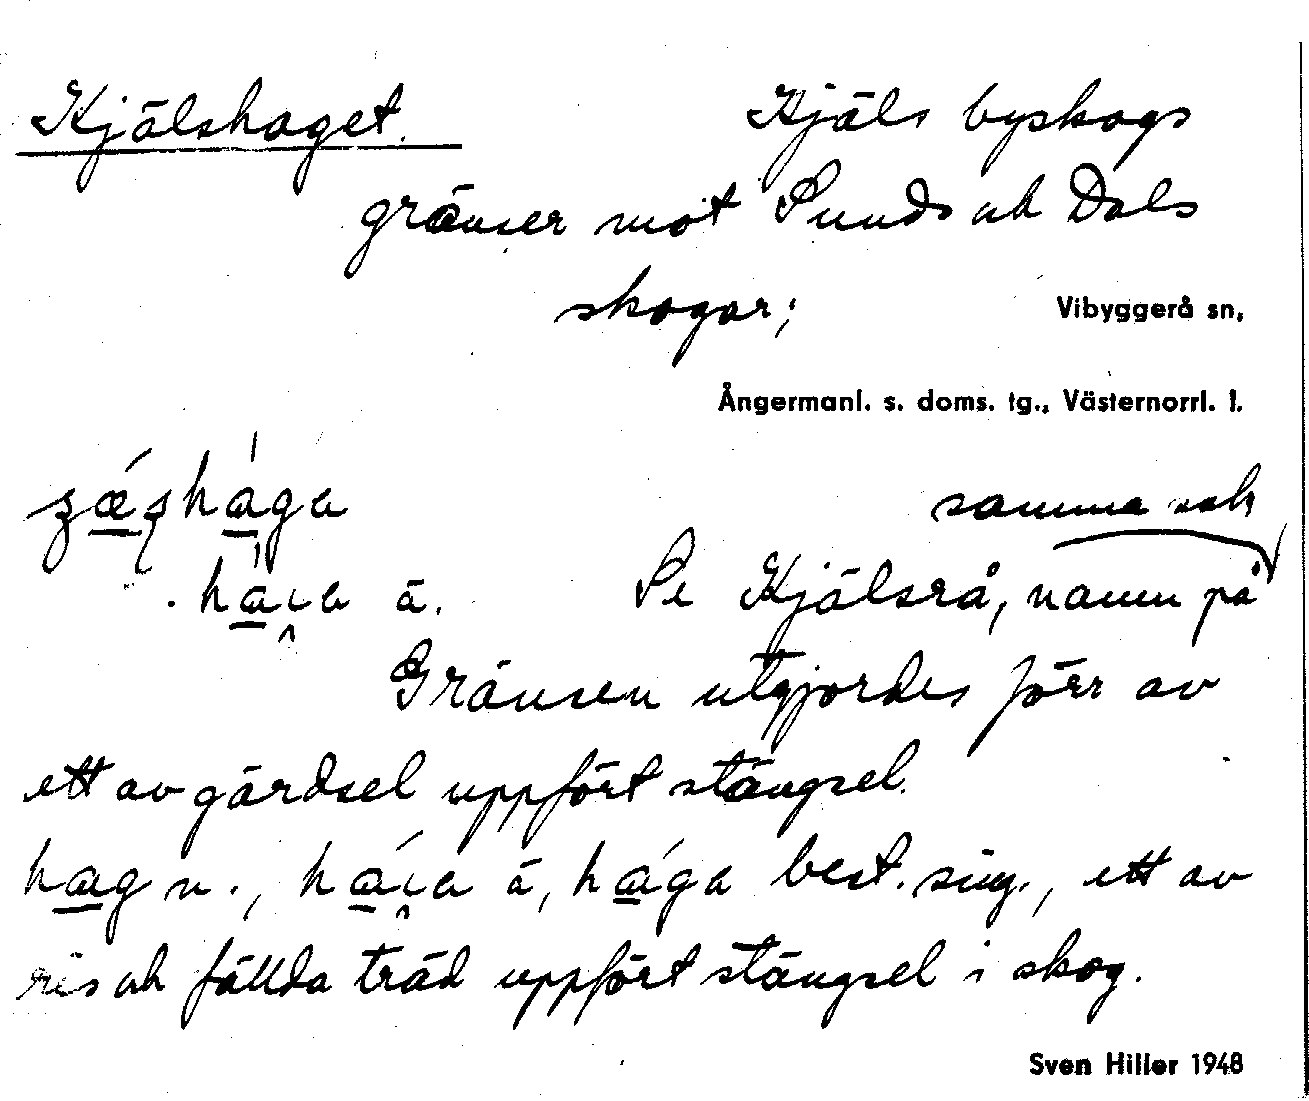 Kjälshaget. Kjäls byskogs
gränser mot Sunds och Dals
skogar;
Vibyggerå sn,
Ångermanl. s. doms. tg., Västernorrl. l.
hága samma sak
ä. Se Kjälsrå, namn på
Gränsen utgjordes förr av
ett av gärdsel uppfört stängsel.
hag n., ä, hága best. sing., ett av
ris och fällda träd uppfört stängsel i skog.
Sven Hiller 1948